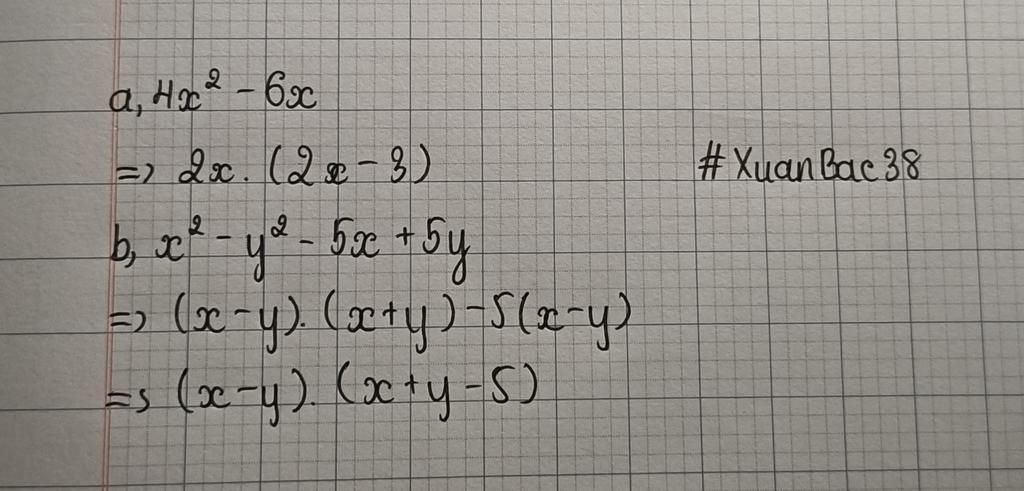 a, 4x² - 6x
=> 2x. (2x - 3)
#XuanBac38
b, x² - y² - 5x + 5y
=> (x - y). (x + y) - 5(x - y)
=> (x - y). (x + y - 5)